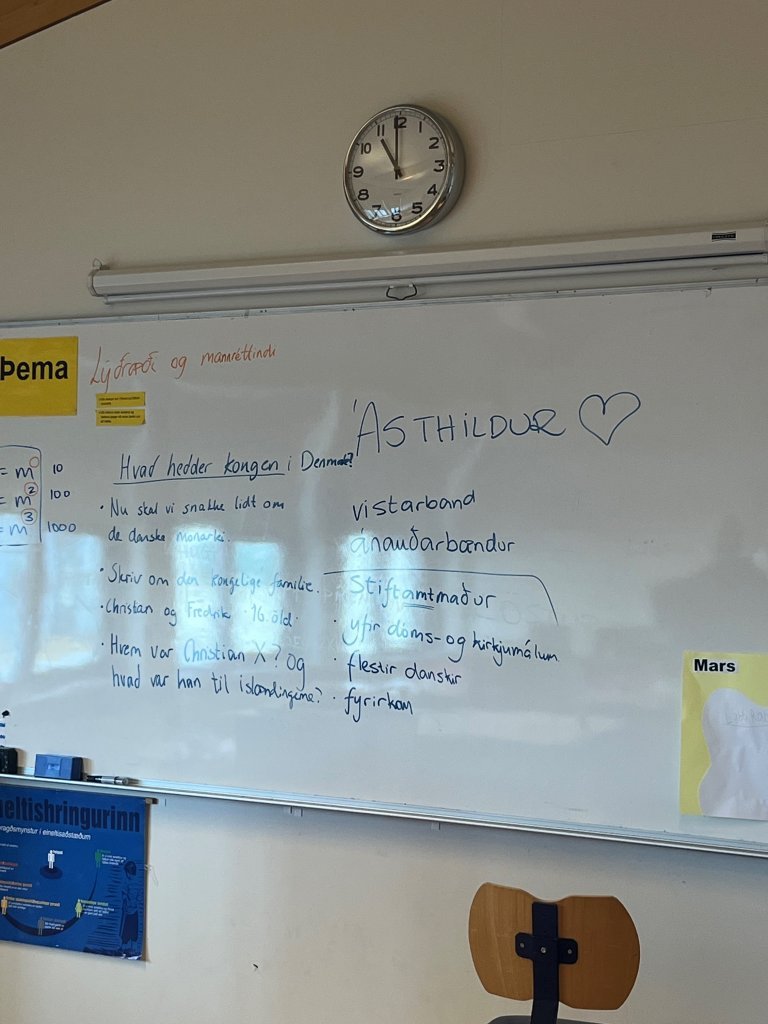 11 12 1
10 2
9 3
8 4
7 6 5
Þema
Lýðræði og mannréttindi
ÁSTHILDUR
= m 10
= m 2 100
= m 3 1000
Hvad hedder kongen i Denmark?
• Nu skal vi snakke lidt om
de danske monarki.
• Skriv om den kongelige familie.
• Christian og Fredrik 16. öld.
• Hvem var Christian X? og
hvad var han til islændingene?
vistarband
ánauðarbændur
Stiftamtmaður
• yfir dóms- og kirkjumálum
• flestir danskir
• fyrirkom
Mars
neltishringurinn
ragðsmynstur í eineltisaðstæðum